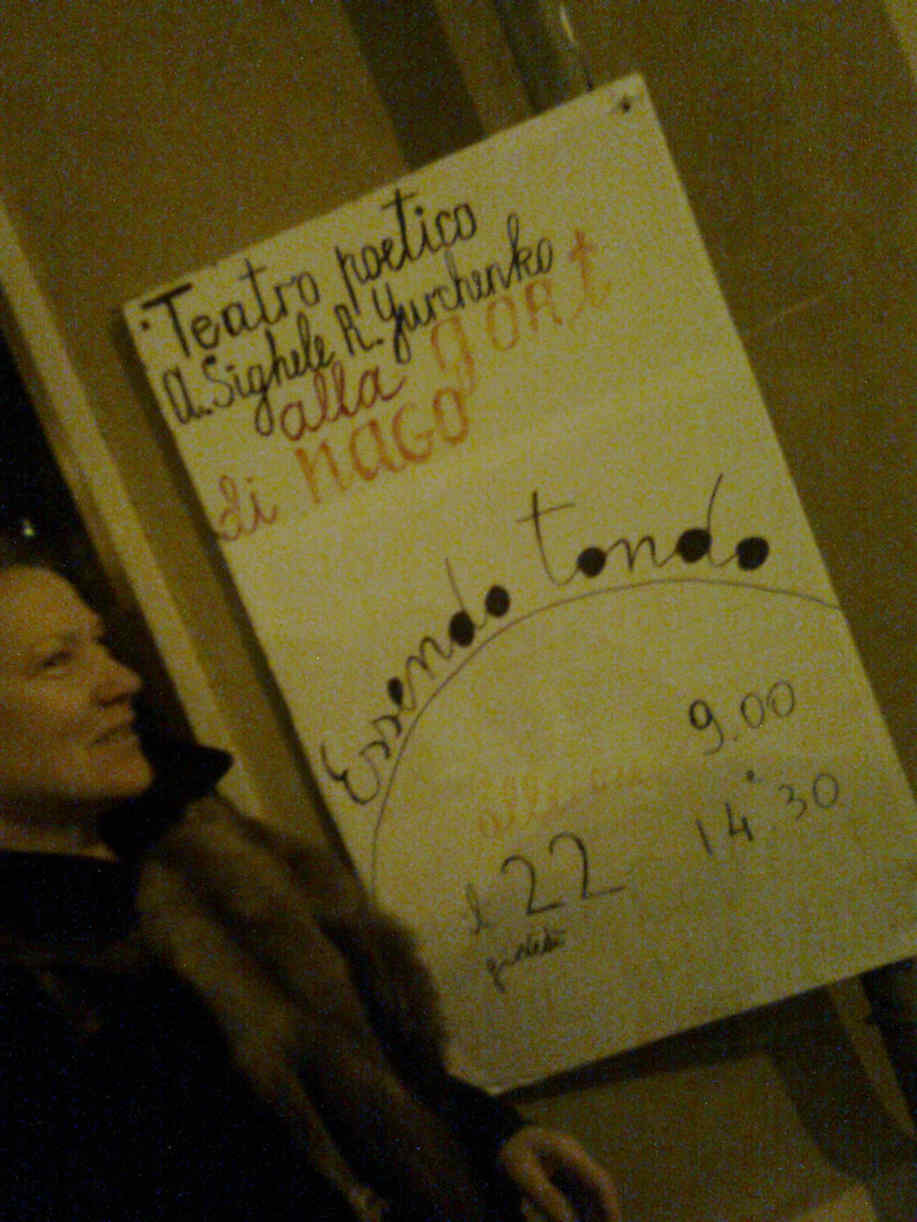 Teatro poetico
A. Sighele R. Yurchenko
alla gort
di NAGO
Essendo tondo
alle ore 9.00
il 22 14.30
giovedì